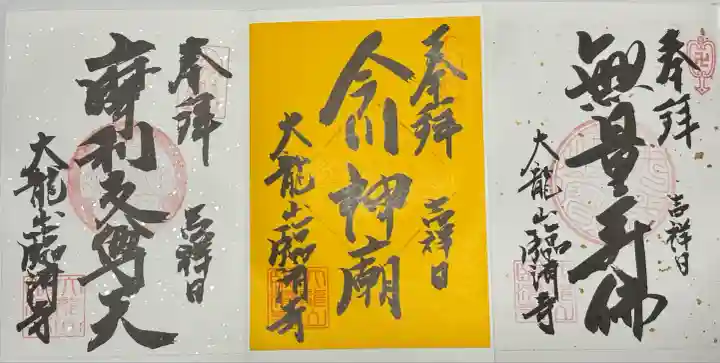 奉拝
吉祥日
無量寿佛
大龍山臨済寺
奉拝
吉祥日
今川神廟
大龍山臨済寺
奉拝
吉祥日
摩利支尊天
大龍山臨済寺